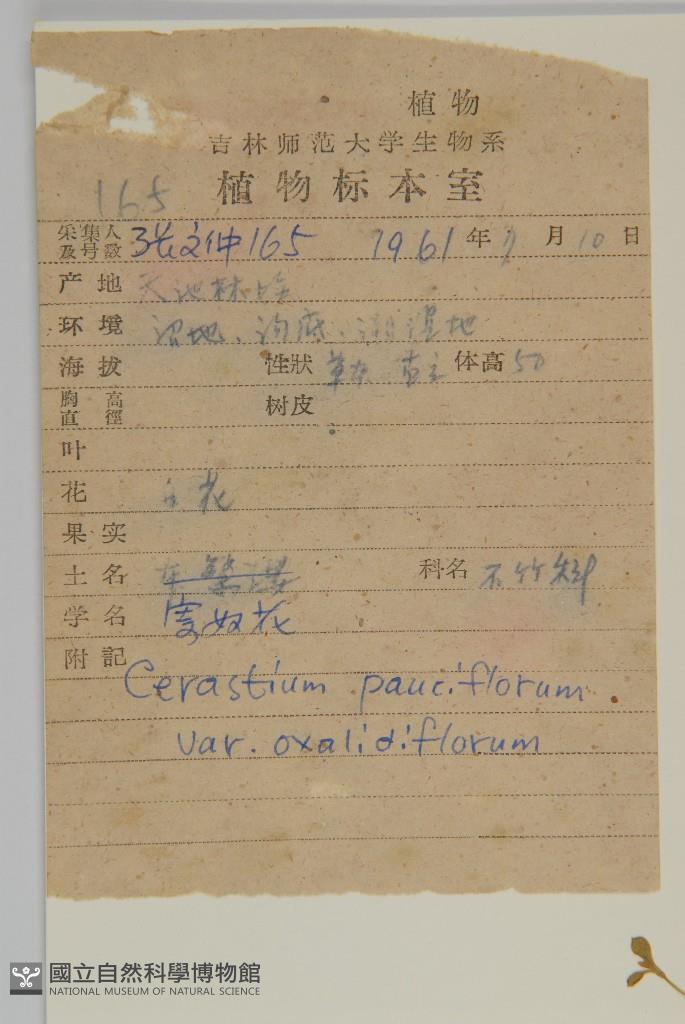 植物
吉林师范大学生物系
165
植物标本室
采集人及号数 张文仲165 1961年 月10日
产地 天池林
环境 沼地、沟底、湿地
海拔 性狀 草本 直立 体高50
胸高直徑 树皮
叶
花 白花
果实
土名 繁 科名 石竹科
学名 寄奴花
附記
Cerastium pauciflorum
var. oxalidiflorum
國立自然科學博物館
NATIONAL MUSEUM OF NATURAL SCIENCE